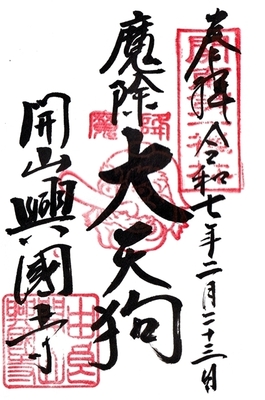 奉拝 令和七年二月二十三日
魔除
大天狗
開山興國寺